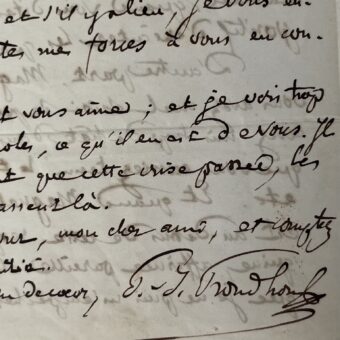 et s'il y a lieu, je vous en-
tes mes forces à vous en con-
t vous aime ; et je vois trop
oles, ce qu'il en est de vous. Il
nt que cette crise passée, les
là.
mon cher ami, et comptez
de cœur, P.-J. Proudhon